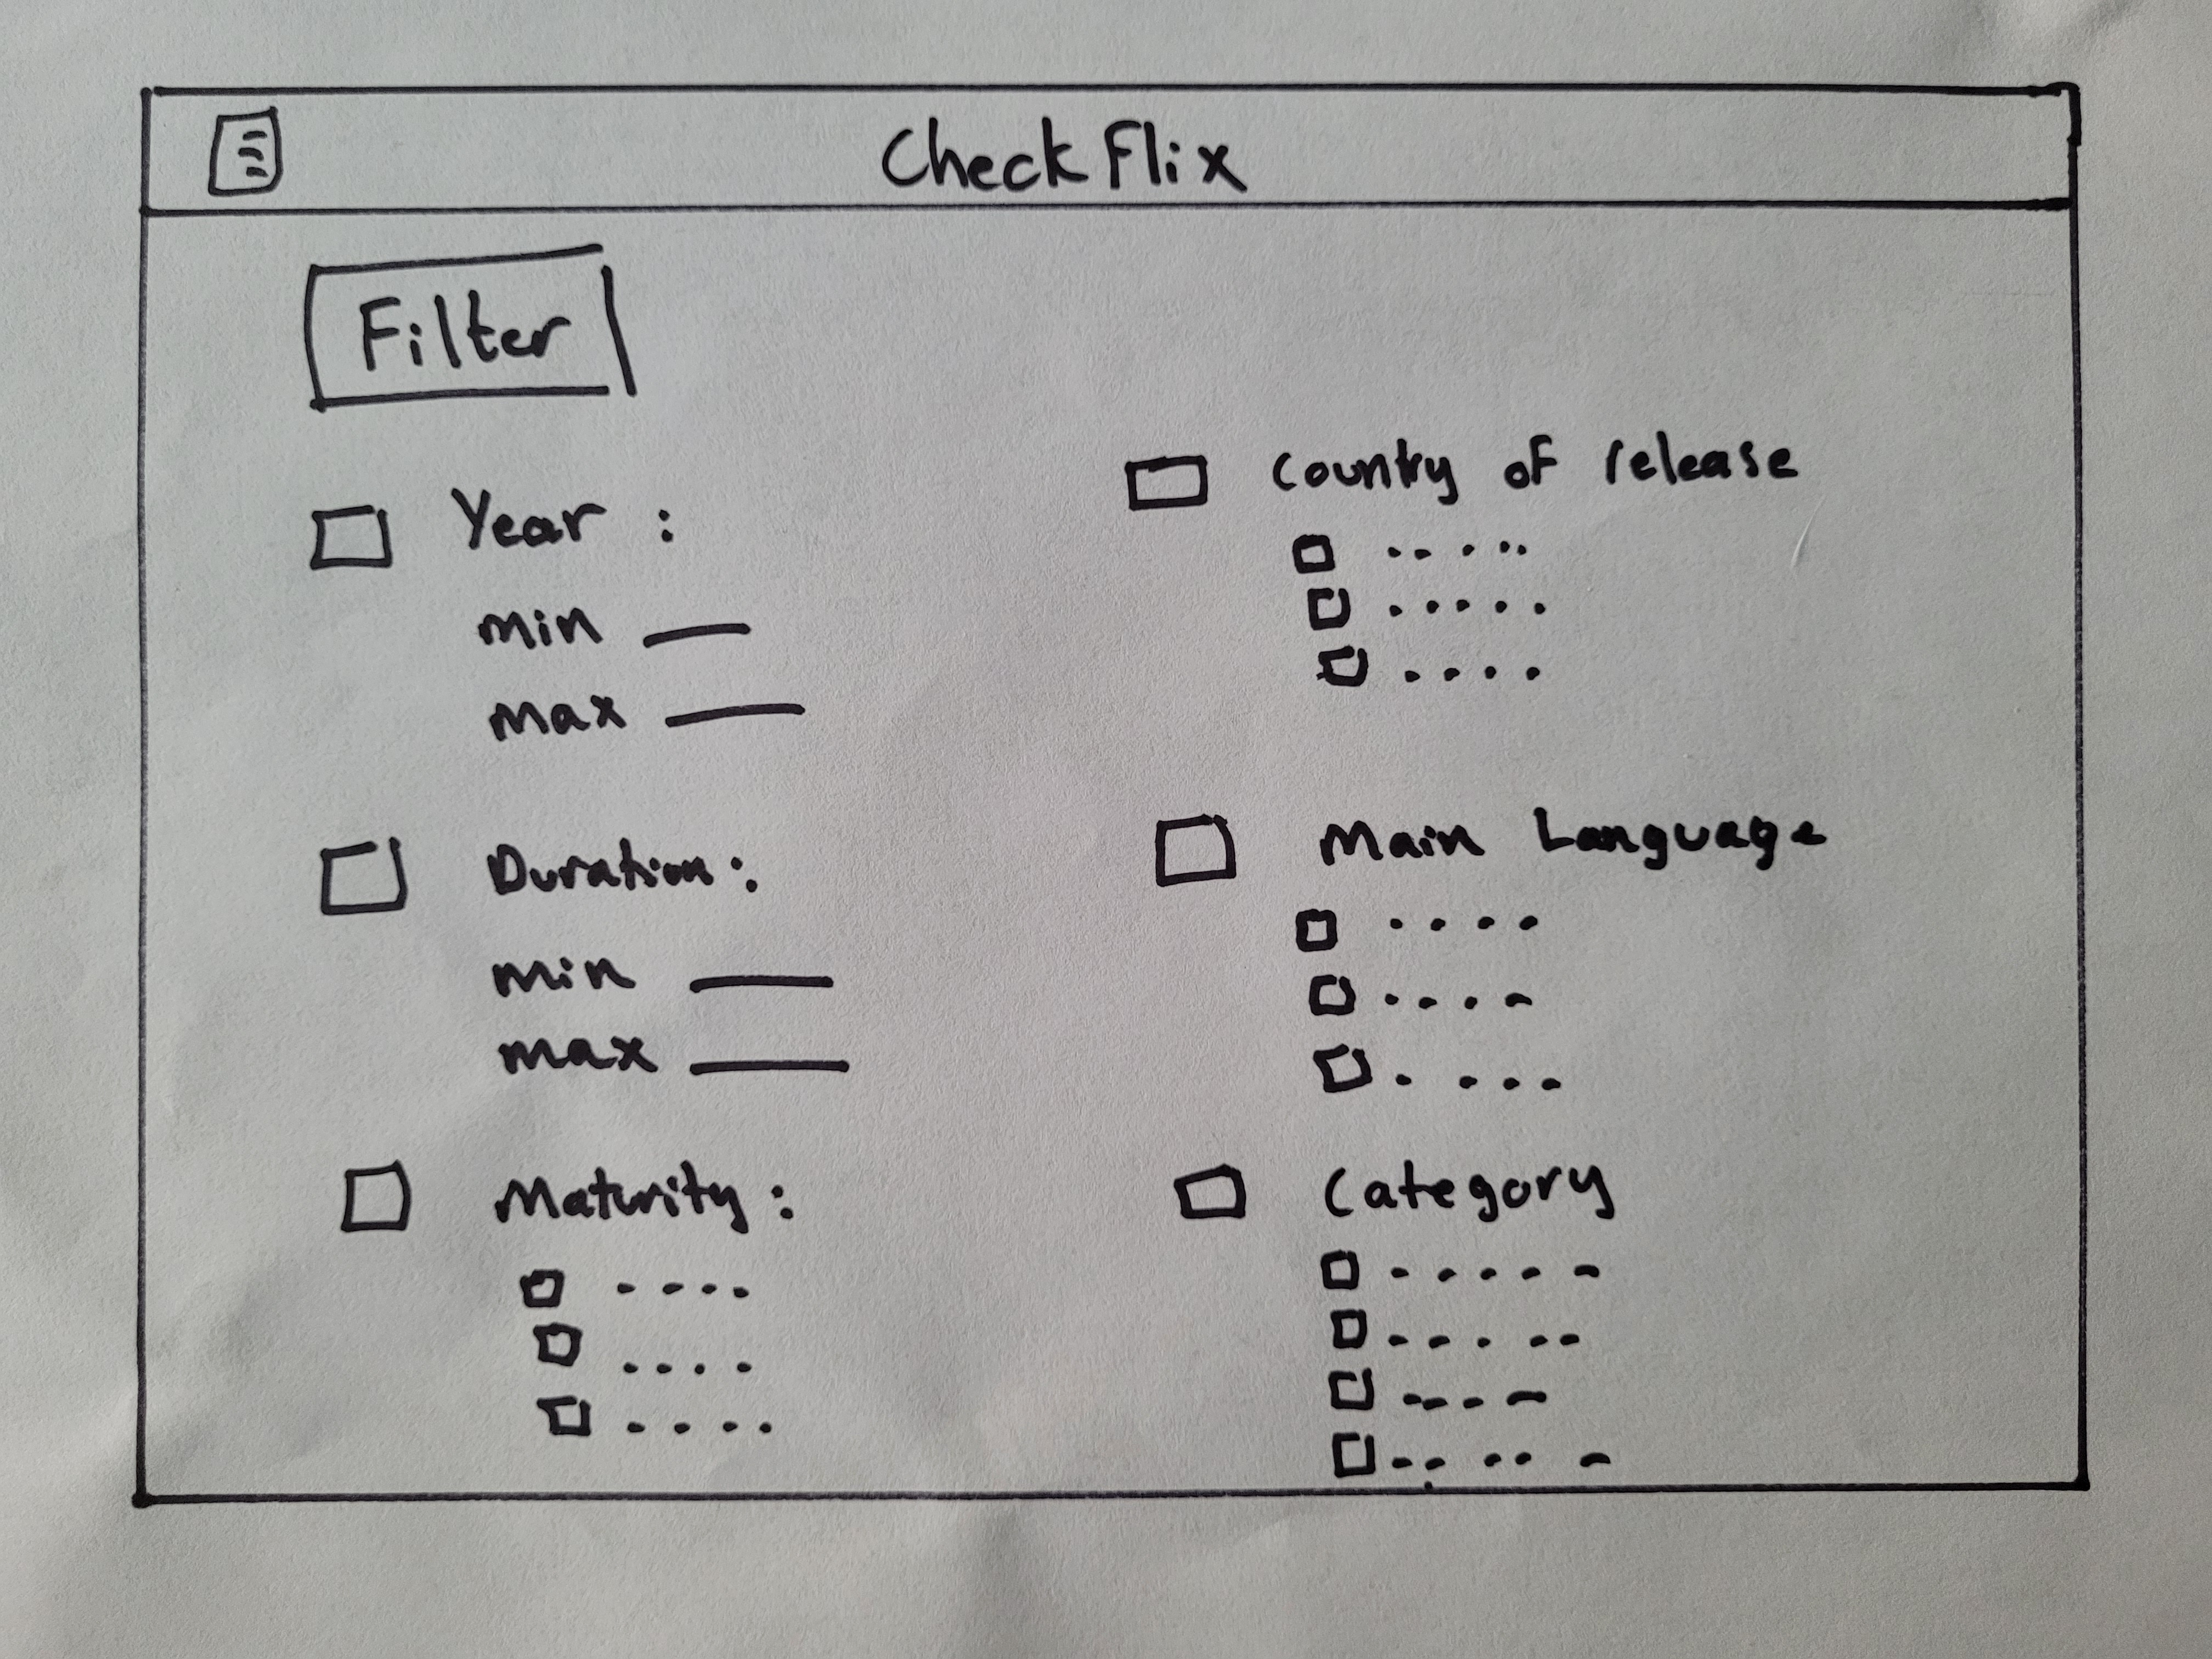 Check Flix
Filter
Year :
min
max
Duration:
min
max
Maturity:
Country of release
Main Language
Category